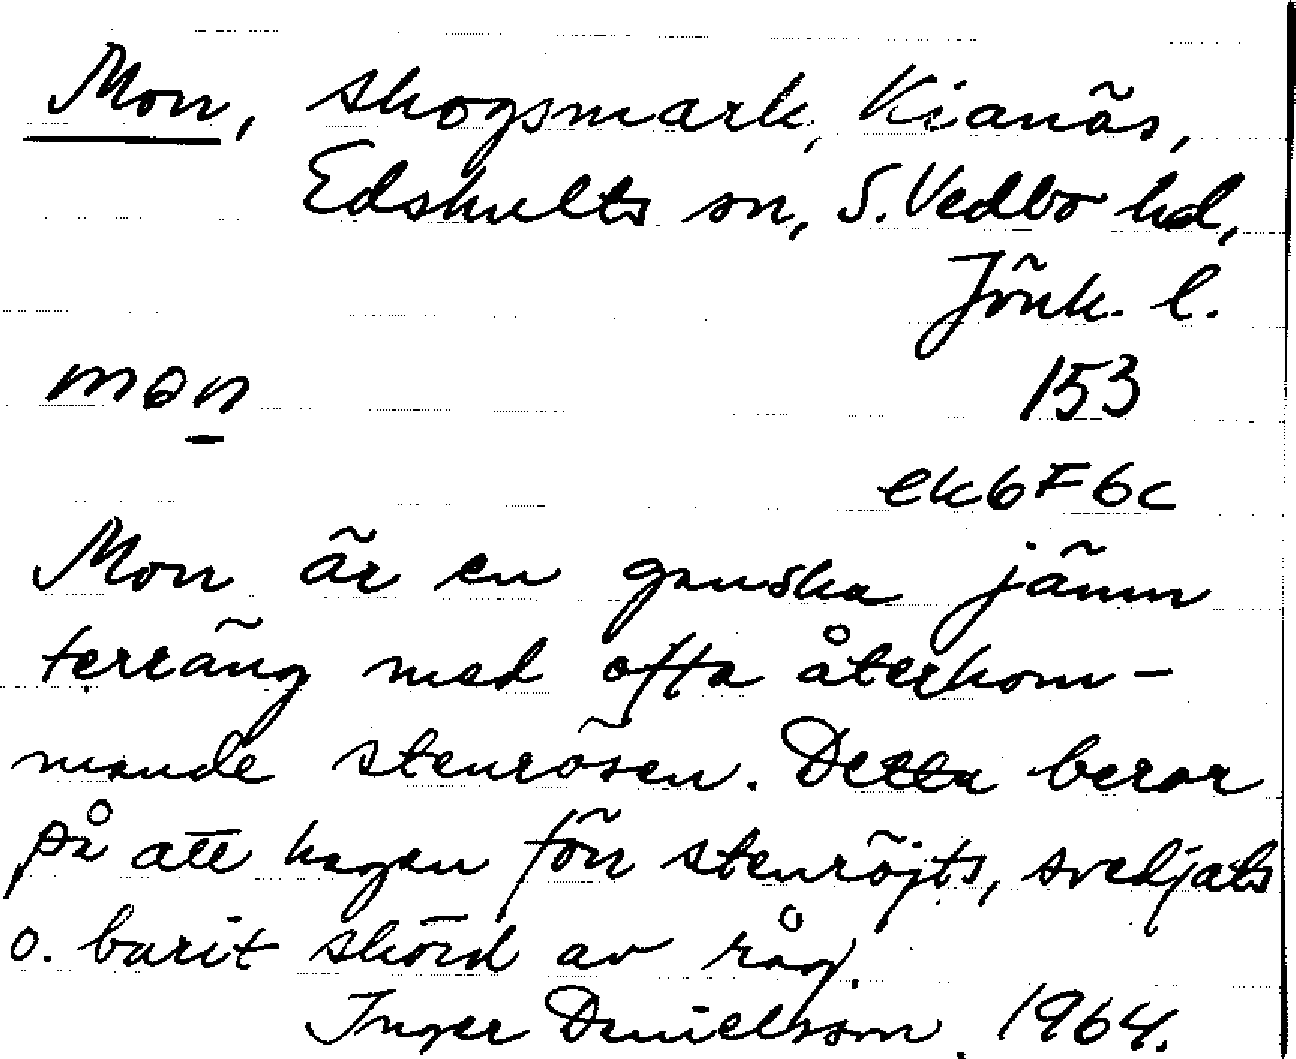 Mon, skogsmark, Kianäs,
Edshults sn, S. Vedbo hd,
Jönk. l.
mon
153
ek6F6c
Mon är en ganska jämn
terräng med ofta återkom-
mande stenrösen. Detta beror
på att hagen förr stenröjts, svedjats
o. burit skörd av råg.
Inger Danielsson. 1964.